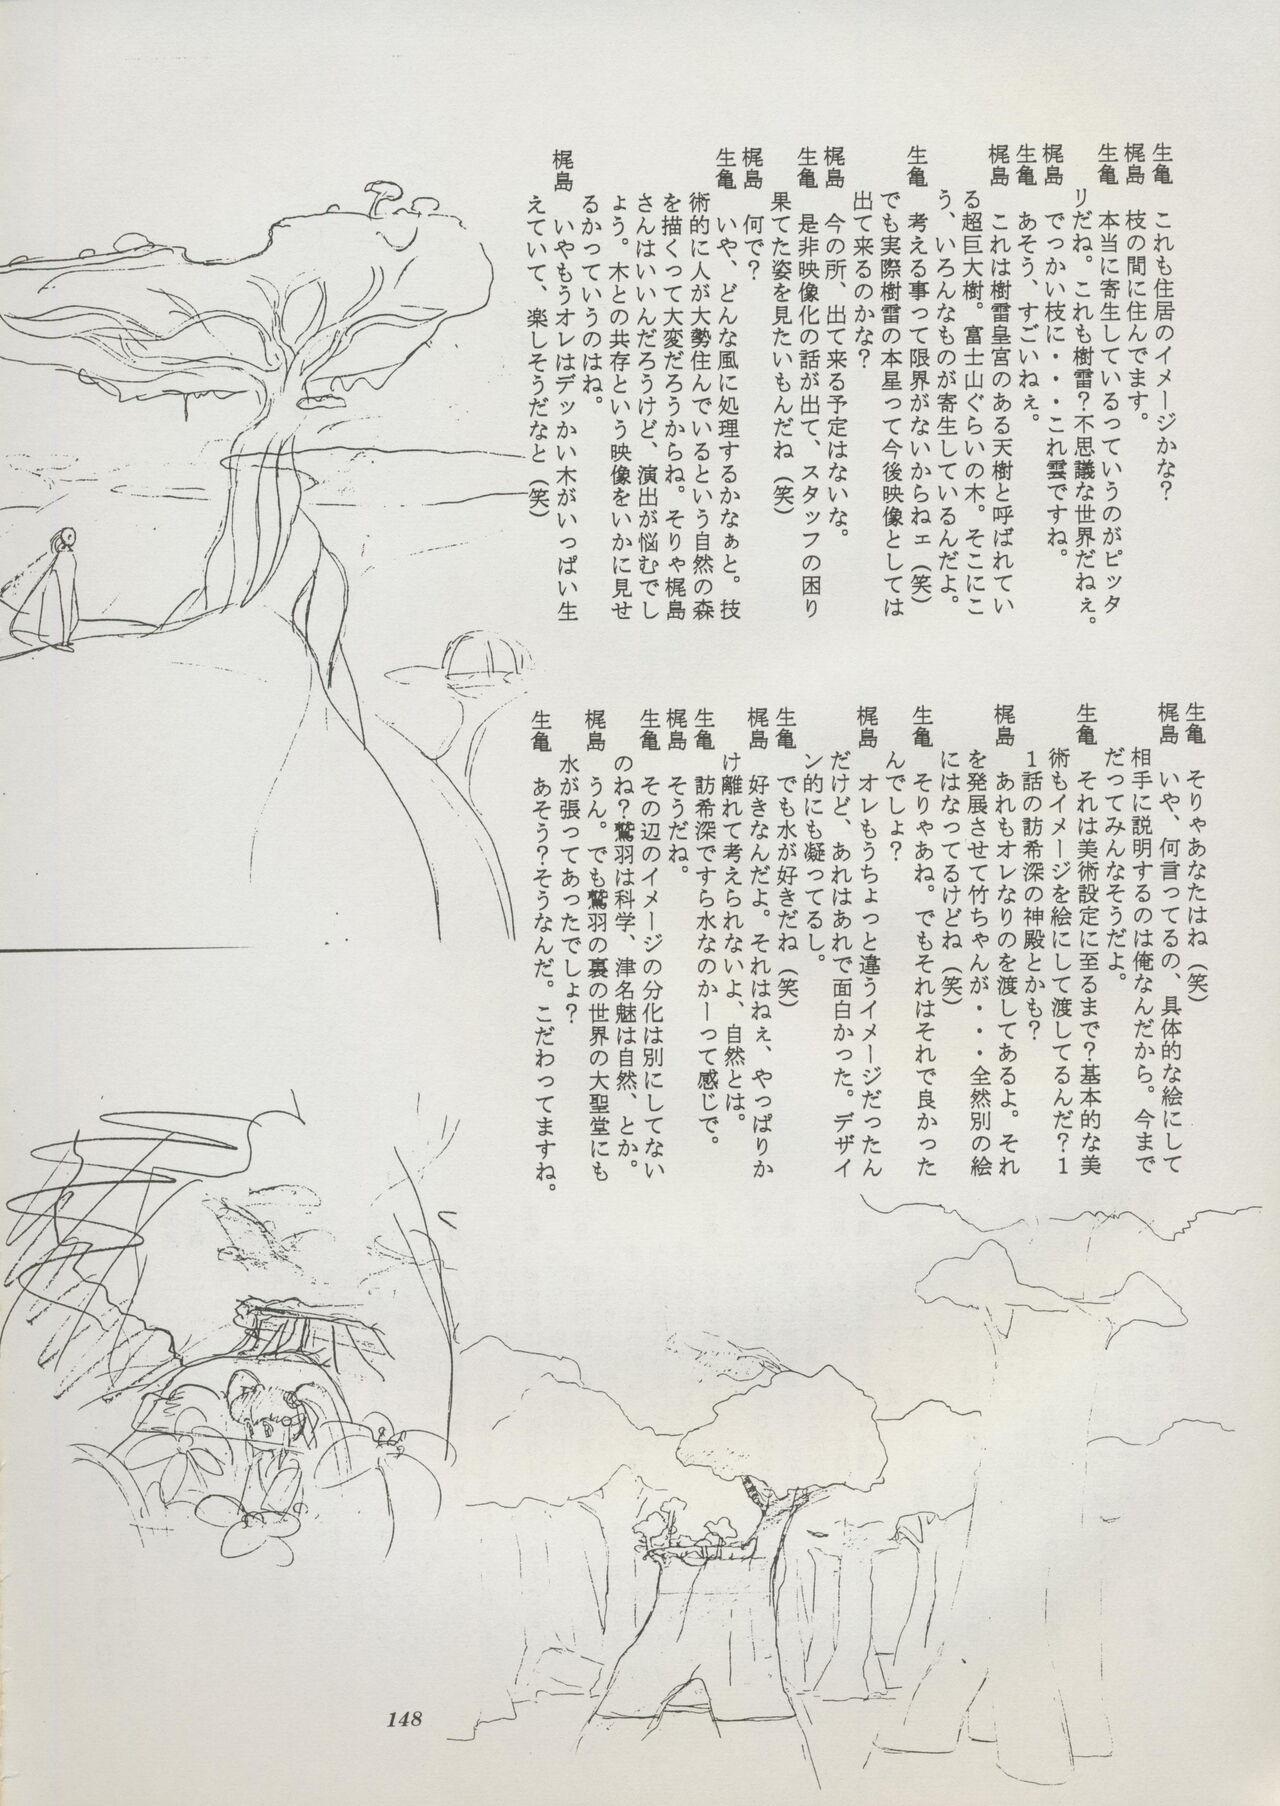 生亀　これも住居のイメージかな?
梶島　枝の間に住んでます。
生亀　本当に寄生しているっていうのがピッタ
リだね。これも樹雷?不思議な世界だねぇ。
梶島　でっかい枝に・・・これ雲ですね。
生亀　あそう、すごいねぇ。
梶島　これは樹雷皇宮のある天樹と呼ばれてい
る超巨大樹。富士山ぐらいの木。そこにこ
う、いろんなものが寄生しているんだよ。
生亀　考える事って限界がないからねェ(笑)
でも実際樹雷の本星って今後映像としては
出て来るのかな?
梶島　今の所、出て来る予定はないな。
生亀　是非映像化の話が出て、スタッフの困り
果てた姿を見たいもんだね(笑)
梶島　何で?
生亀　いや、どんな風に処理するかなぁと。技
術的に人が大勢住んでいるという自然の森
を描くって大変だろうからね。そりゃ梶島
さんはいいんだろうけど、演出が悩むでし
ょう。木との共存という映像をいかに見せ
るかっていうのはね。
梶島　いやもうオレはデッかい木がいっぱい生
えていて、楽しそうだなと(笑)
生亀　そりゃあなたはね(笑)
梶島　いや、何言ってるの、具体的な絵にして
相手に説明するのは俺なんだから。今まで
だってみんなそうだよ。
生亀　それは美術設定に至るまで?基本的な美
術もイメージを絵にして渡してるんだ?1
1話の訪希深の神殿とかも?
梶島　あれもオレなりのを渡してあるよ。それ
を発展させて竹ちゃんが・・・全然別の絵
にはなってるけどね(笑)
生亀　そりゃあね。でもそれはそれで良かった
んでしょ?
梶島　オレもうちょっと違うイメージだったん
だけど、あれはあれで面白かった。デザイ
ン的にも凝ってるし。
生亀　でも水が好きだね(笑)
梶島　好きなんだよ。それはねぇ、やっぱりか
け離れて考えられないよ、自然とは。
生亀　訪希深ですら水なのかーって感じで。
梶島　そうだね。
生亀　その辺のイメージの分化は別にしてない
のね?鷲羽は科学、津名魅は自然、とか。
梶島　うん。でも鷲羽の裏の世界の大聖堂にも
水が張ってあったでしょ?
生亀　あそう?そうなんだ。こだわってますね。
148